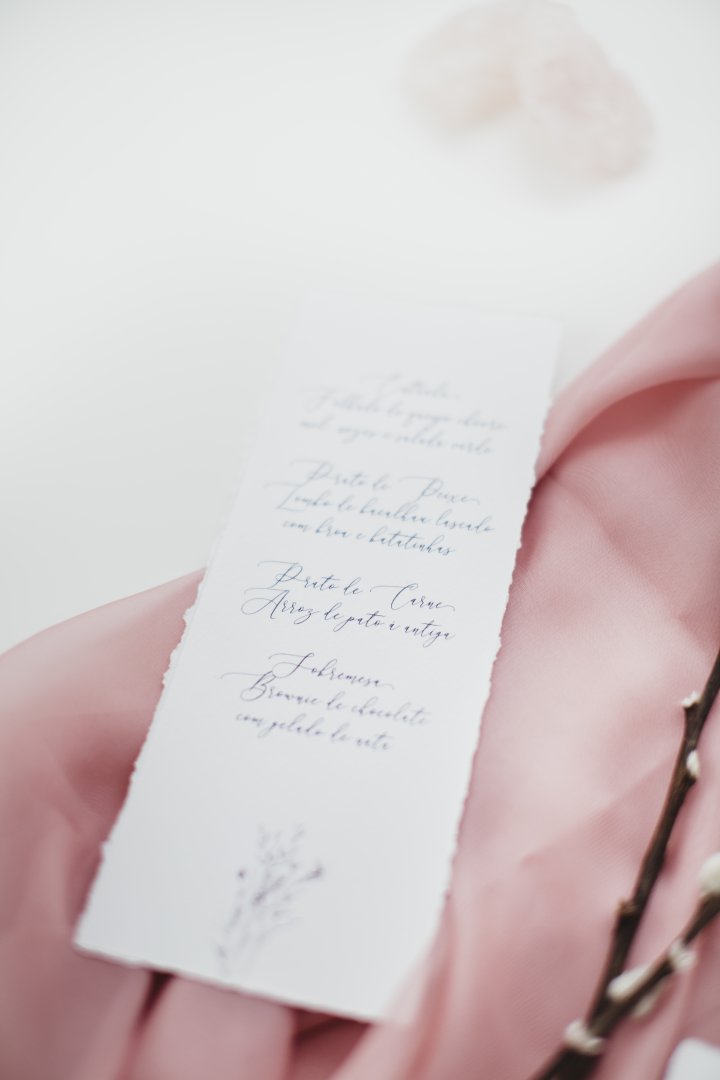 Entrada
Folhado de queijo chèvre
mel, nozes e salada verde
Prato de Peixe
Lombo de bacalhau lascado
com broa e batatinhas
Prato de Carne
Arroz de pato à antiga
Sobremesa
Brownie de chocolate
com gelado de nata